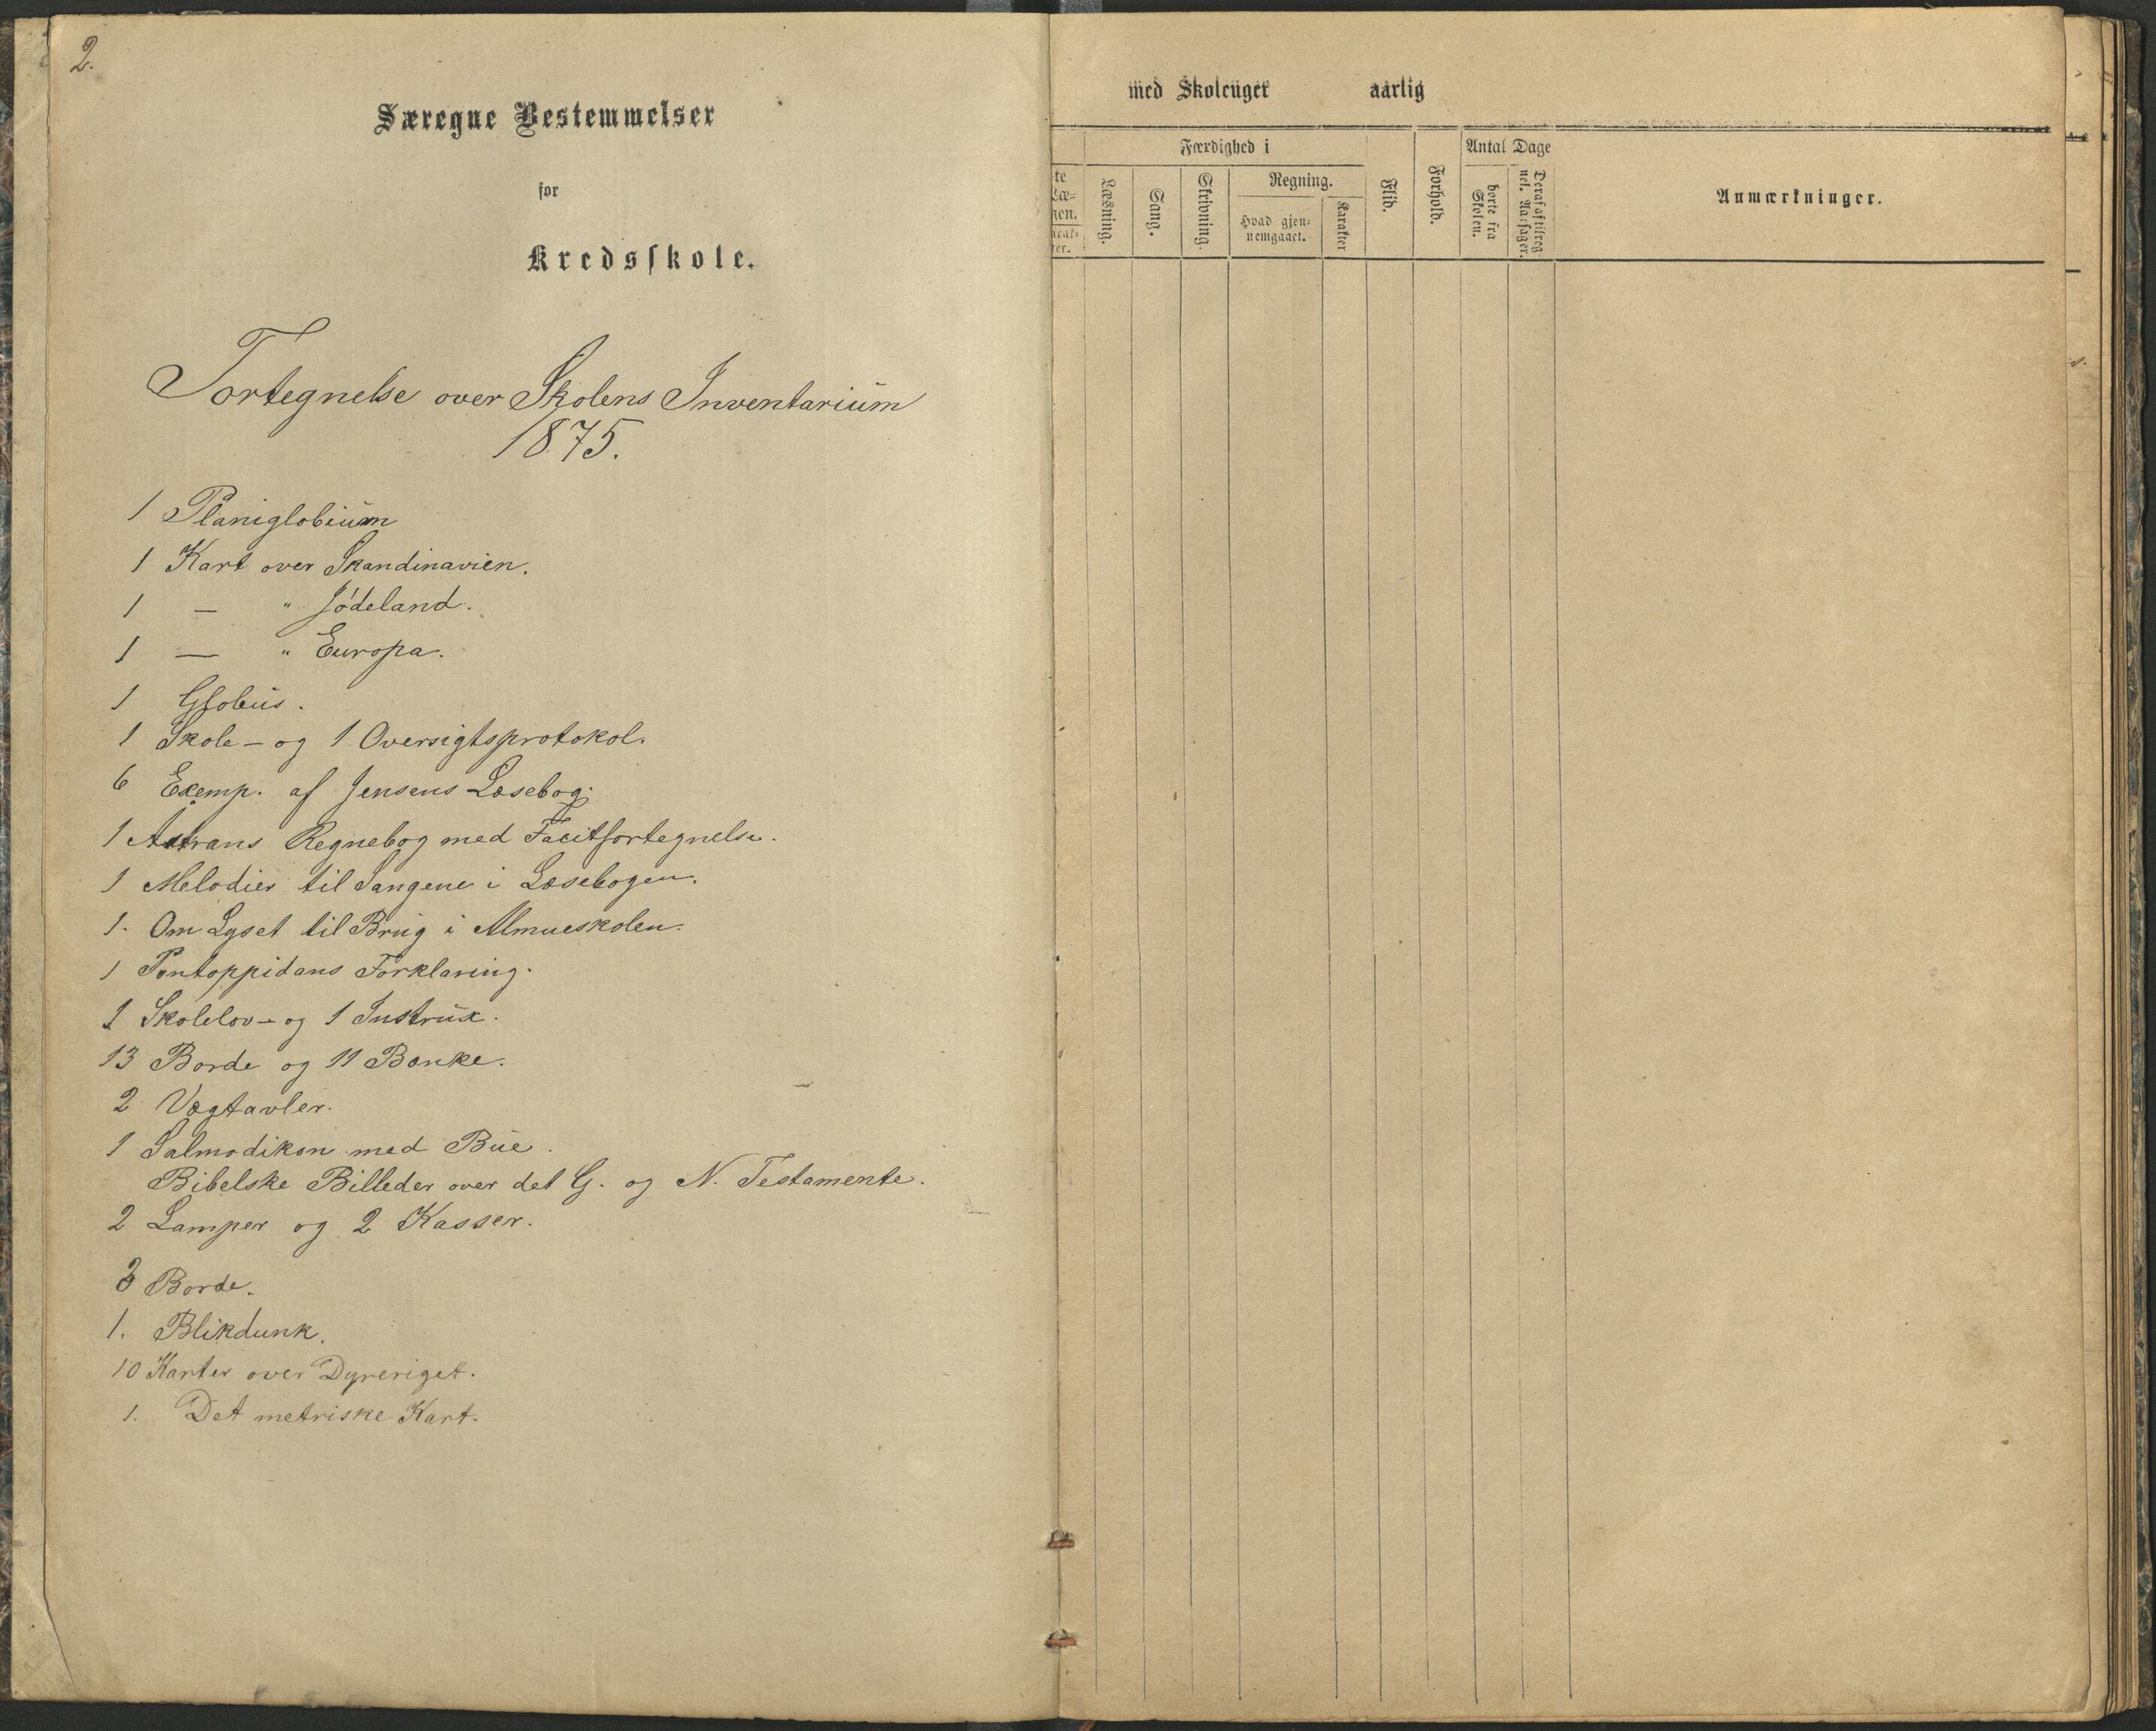 2.
Særegne Bestemmelser
for
Kredsskole.
Fortegnelse over Skolens Inventarium
1875.
1 Planiglobium
1 Kart over Skandinavien.
1 — " Jødeland.
1 — " Europa.
1 Globus.
1 Skole- og 1 Oversigtsprotokol.
6 Exemp. af Jensens Læsebog.
1 Aatrans Regnebog med Facitfortegnelse.
1 Melodier til Sangene i Læsebogen.
1. Om Lyset til Brug i Almueskolen.
1 Pontoppidans Forklaring.
1 Skolelov- og 1 Instrux.
13 Borde og 11 Bænke.
2 Vægtavler.
1 Salmodikon med Bue.
Bibelske Billeder over det G. og N. Testamente.
2 Lamper og 2 Kasser.
Borde.
1. Blikdunk.
10 Karter over Dyreriget.
1. Det metriske Kart.
med Skoleuger aarlig
Færdighed i
Antal Dage
te
Læ-
gen.
arak-
ter.
Læsning.
Sang.
Skrivning.
Regning.
Hvad gjen-
nemgaaet.
Karakter
Flid.
Forhold.
borte fra
Skolen.
Deraf af tilreg
nel. Aarsager.
Anmærkninger.